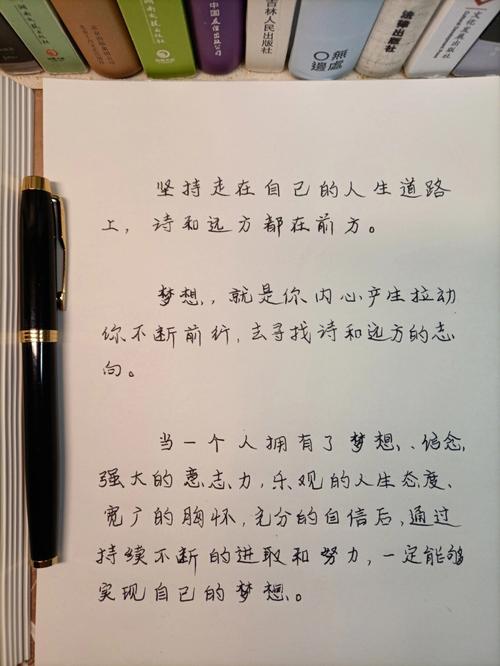 湖南文艺出版社
中国友谊出版公司
吉林人民出版社
無處
邊
法律出版社
文化发展出版社
坚持走在自己的人生道路
上，诗和远方都在前方。
梦想，，就是你内心产生拉动
你不断前行，去寻找诗和远方的志
向。
当一个人拥有了梦想、信念，
强大的意志力，乐观的人生态度、
宽广的胸怀，充分的自信后，通过
持续不断的进取和努力，一定能够
实现自己的梦想。